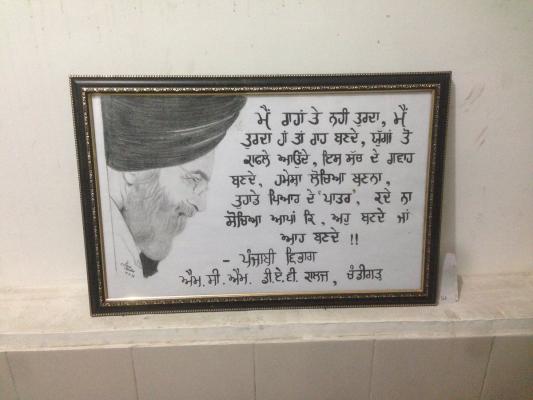 ਮੈਂ ਰਾਹਾਂ ਤੇ ਨਹੀਂ ਤੁਰਦਾ, ਮੈਂ
ਤੁਰਦਾ ਹਾਂ ਤਾਂ ਰਾਹ ਬਣਦੇ, ਯੁੱਗਾਂ ਤੋਂ
ਕਾਫਲੇ ਆਉਂਦੇ, ਇਸ ਸੱਚ ਦੇ ਗਵਾਹ
ਬਣਦੇ, ਹਮੇਸ਼ਾ ਲੋਚਿਆ ਬਣਨਾ,
ਤੁਹਾਡੇ ਪਿਆਰ ਦੇ 'ਪਾਤਰ', ਕਦੇ ਨਾ
ਸੋਚਿਆ ਆਪਾਂ ਕਿ, ਅਹੁ ਬਣਦੇ ਜਾਂ
ਆਹ ਬਣਦੇ !!
- ਪੰਜਾਬੀ ਵਿਭਾਗ
ਐਮ.ਸੀ.ਐਮ. ਡੀ.ਏ.ਵੀ. ਕਾਲਜ, ਚੰਡੀਗੜ੍ਹ